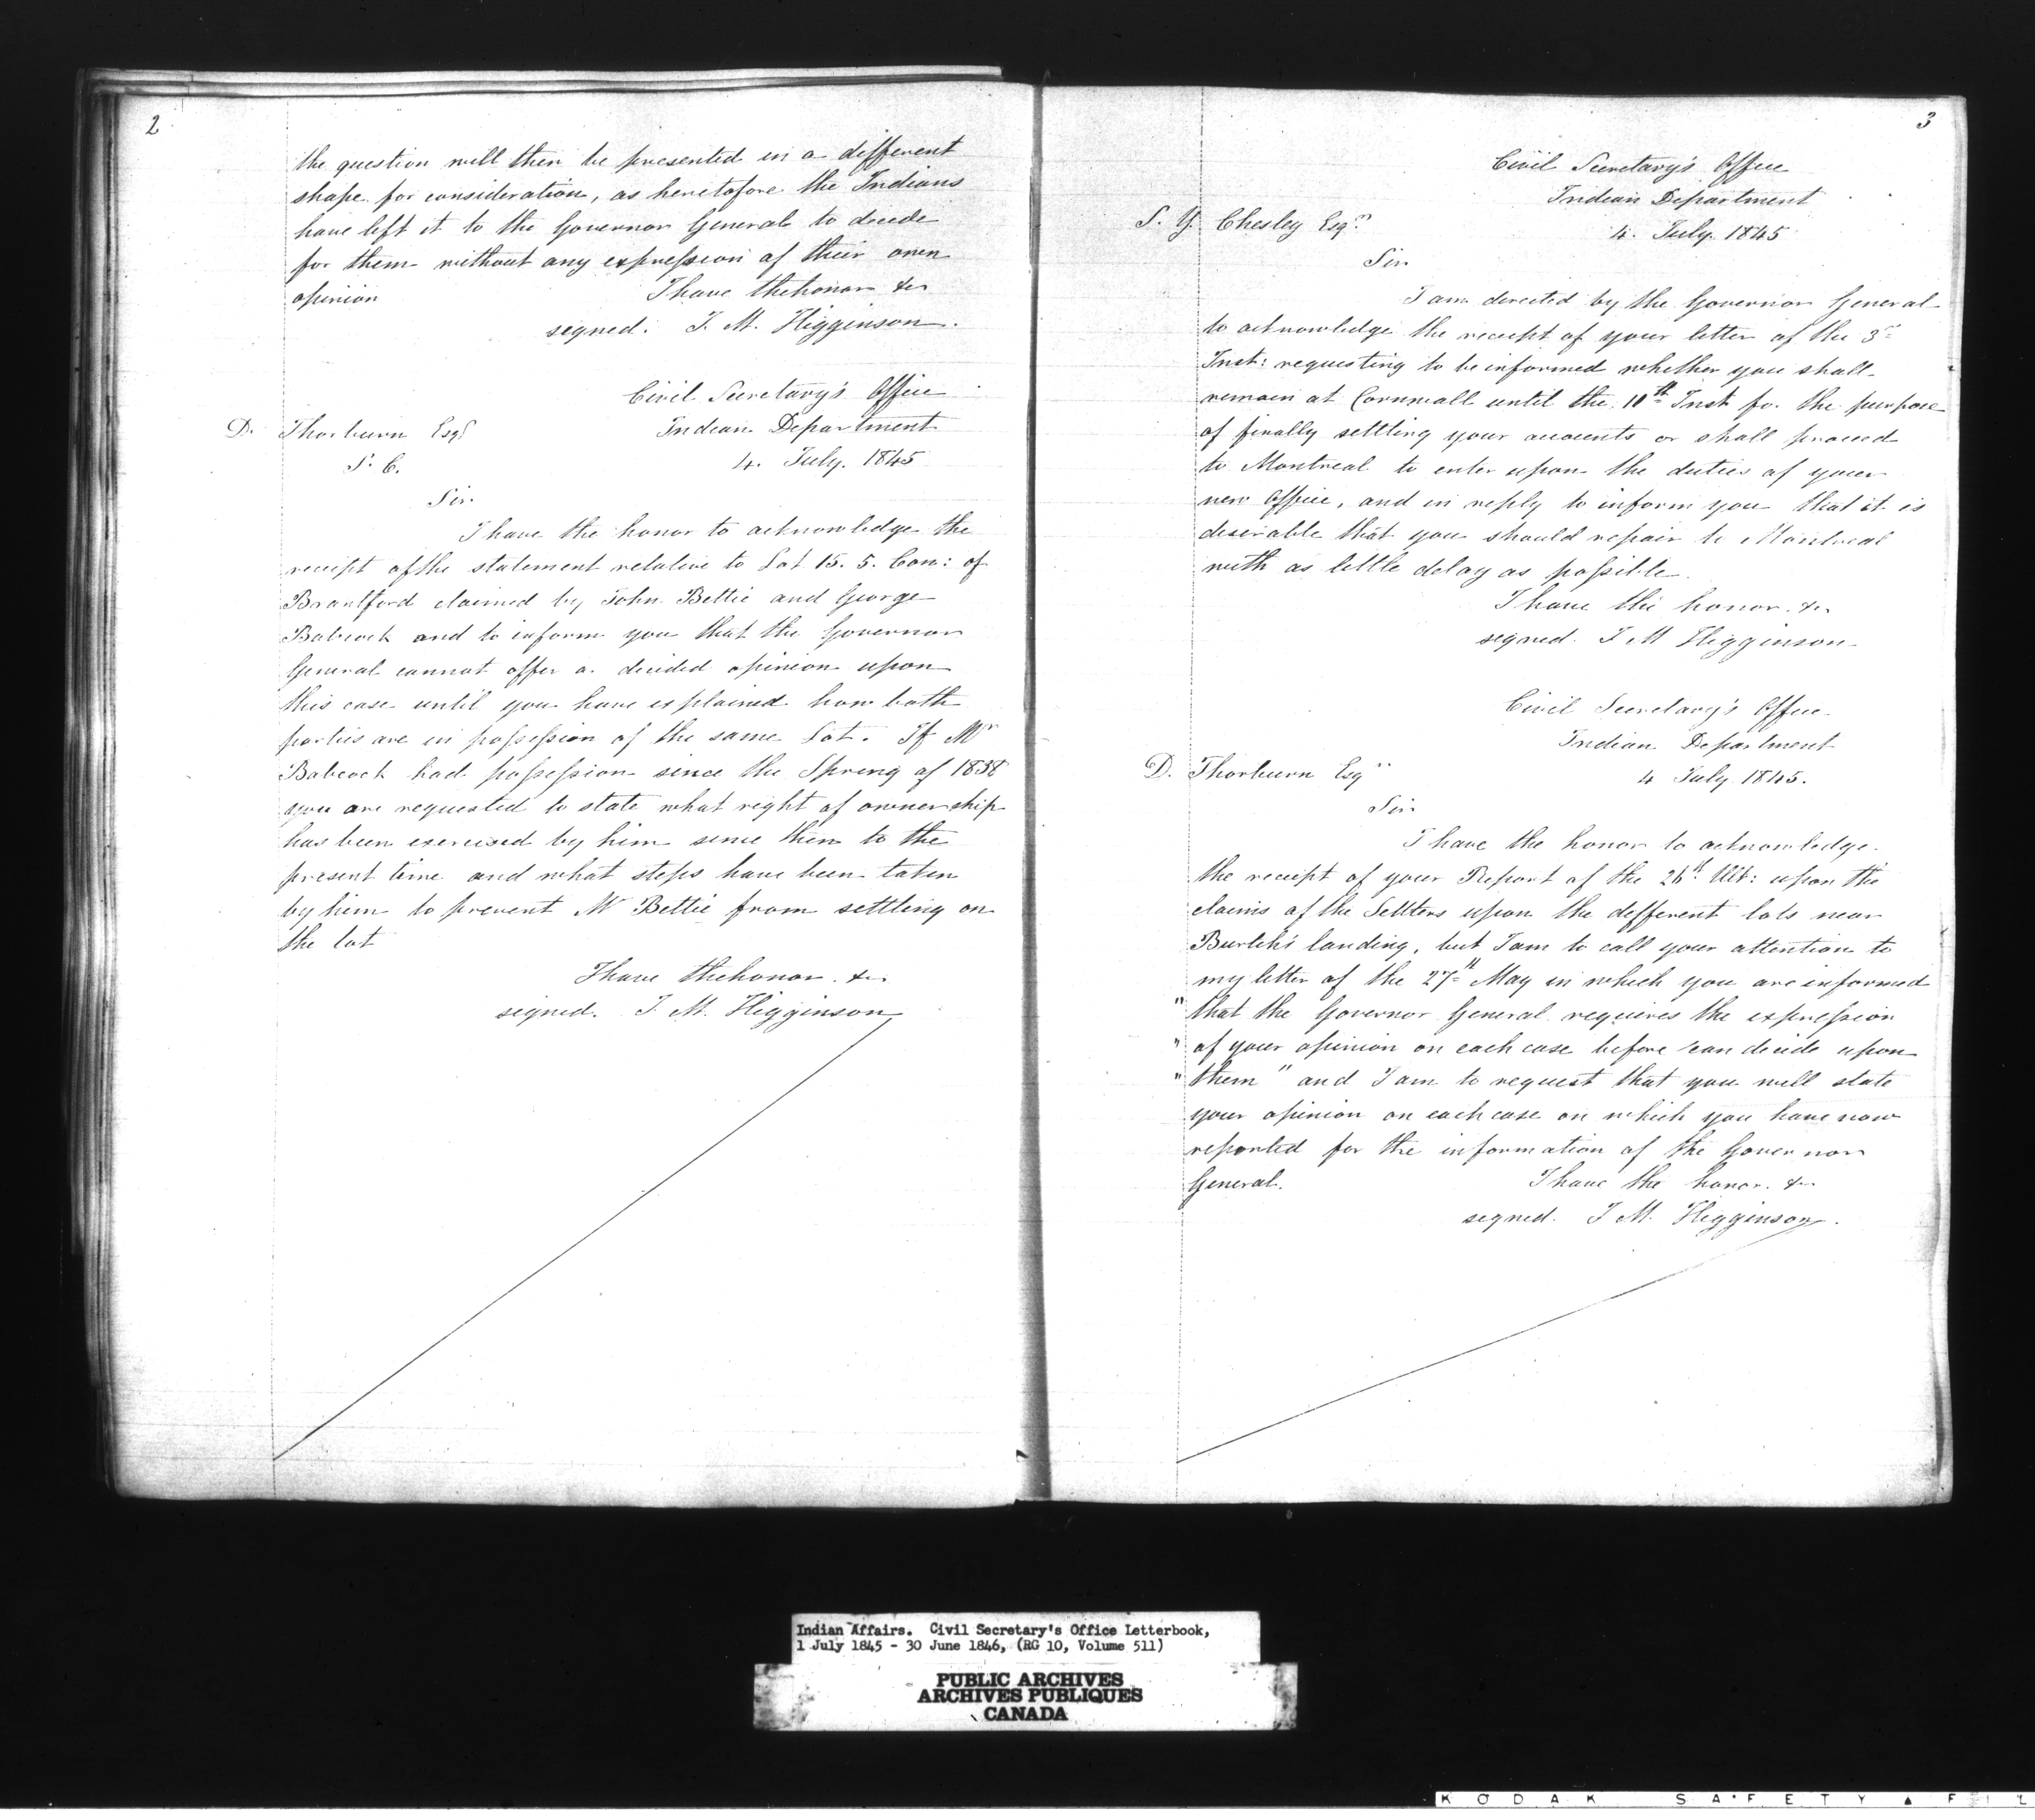 2
the question will then be presented in a different
shape for consideration, as heretofore the Indians
have left it to the Governor General to decide
for them without any expression of their own
opinion I have the honor &c
signed. J. M. Higginson.
Civil Secretary's Office
D. Thorburn Esqr Indian Department
S. C. 4. July. 1845
Sir
I have the honor to acknowledge the
receipt of the statement relative to Lot 15. 5. Con: of
Brantford claimed by John Bettie and George
Babcock and to inform you that the Governor
General cannot offer a decided opinion upon
this case until you have explained how both
parties are in possession of the same Lot. If Mr
Babcock had possession since the Spring of 1838
you are requested to state what right of ownership
has been exercised by him since then to the
present time and what steps have been taken
by him to prevent Mr Bettie from settling on
the lot
I have the honor. &c
signed. J. M. Higginson
3
Civil Secretary's Office
Indian Department
S. Y. Chesley Esqr 4. July. 1845
Sir
I am directed by the Governor General
to acknowledge the receipt of your letter of the 3rd
Inst: requesting to be informed whether you shall
remain at Cornwall until the 10th Inst for the purpose
of finally settling your accounts or shall proceed
to Montreal to enter upon the duties of your
new Office, and in reply to inform you that it is
desirable that you should repair to Montreal
with as little delay as possible.
I have the honor. &c
signed. J M Higginson
Civil Secretary's Office.
Indian Department
D. Thorburn Esqr 4 July. 1845.
Sir
I have the honor to acknowledge.
the receipt of your Report of the 26th Ult: upon the
claims of the Settlers upon the different lots near
Burtch's landing, but I am to call your attention to
my letter of the 27th May in which you are informed
" that the Governor General requires the expression
" of your opinion on each case before can decide upon
" them " and I am to request that you will state
your opinion on each case on which you have now
reported for the information of the Governor
General. I have the honor. &c
signed. J M. Higginson.
Indian Affairs. Civil Secretary's Office Letterbook,
1 July 1845 - 30 June 1846, (RG 10, Volume 511)
PUBLIC ARCHIVES
ARCHIVES PUBLIQUES
CANADA
KODAK SAFETY ▲ FIL